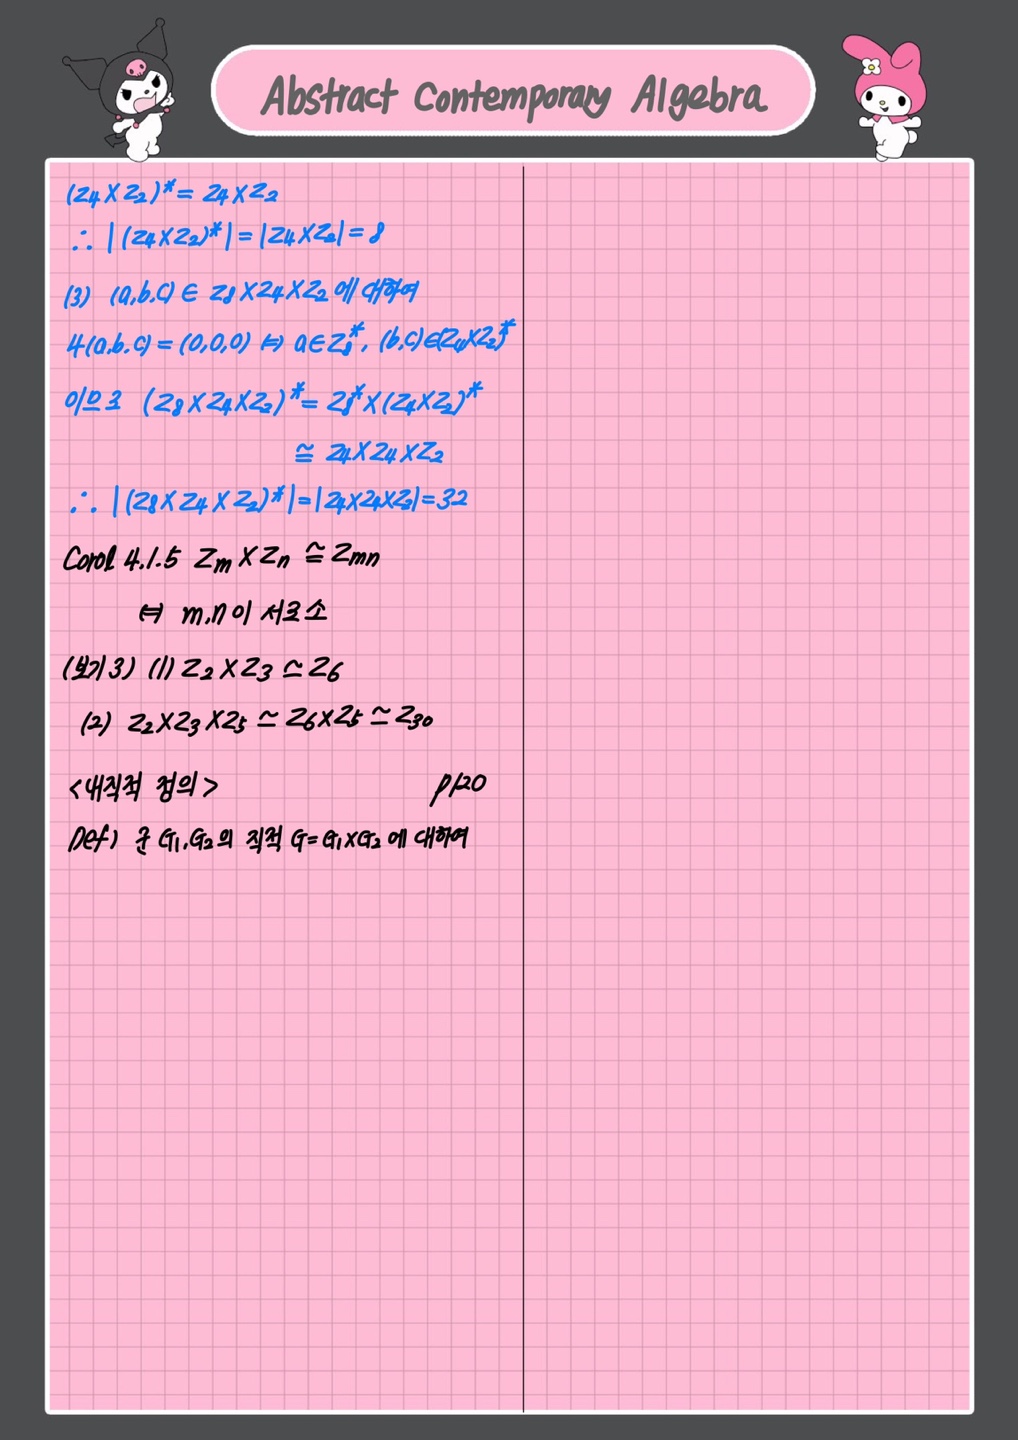 Abstract Contemporary Algebra
(Z4×Z2)*= Z4×Z2
∴ |(Z4×Z2)*|=|Z4×Z2|=8
(3) (a,b,c)∈ Z8×Z4×Z2에 대하여
4(a,b,c)=(0,0,0) ⇔ a∈Z8*, (b,c)∈(Z4×Z2)*
이므로 (Z8×Z4×Z2)*= Z8*×(Z4×Z2)*
≅ Z4×Z4×Z2
∴ |(Z8×Z4×Z2)*|=|Z4×Z4×Z2|=32
Corol 4.1.5 Zm×Zn ≅ Zmn
⇔ m,n이 서로소
(보기3) (1) Z2×Z3 ≃ Z6
(2) Z2×Z3×Z5 ≃ Z6×Z5 ≃ Z30
<내직적 정의> p120
Def) 군 G1,G2의 직적 G=G1×G2에 대하여